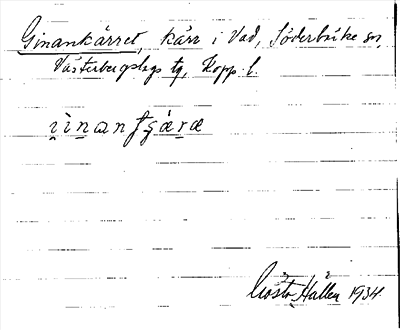 Ginankärret, kärr i Vad, Söderbärke sn,
Västerbergslags tg, Kopp. l.
Gösta Hallén 1934